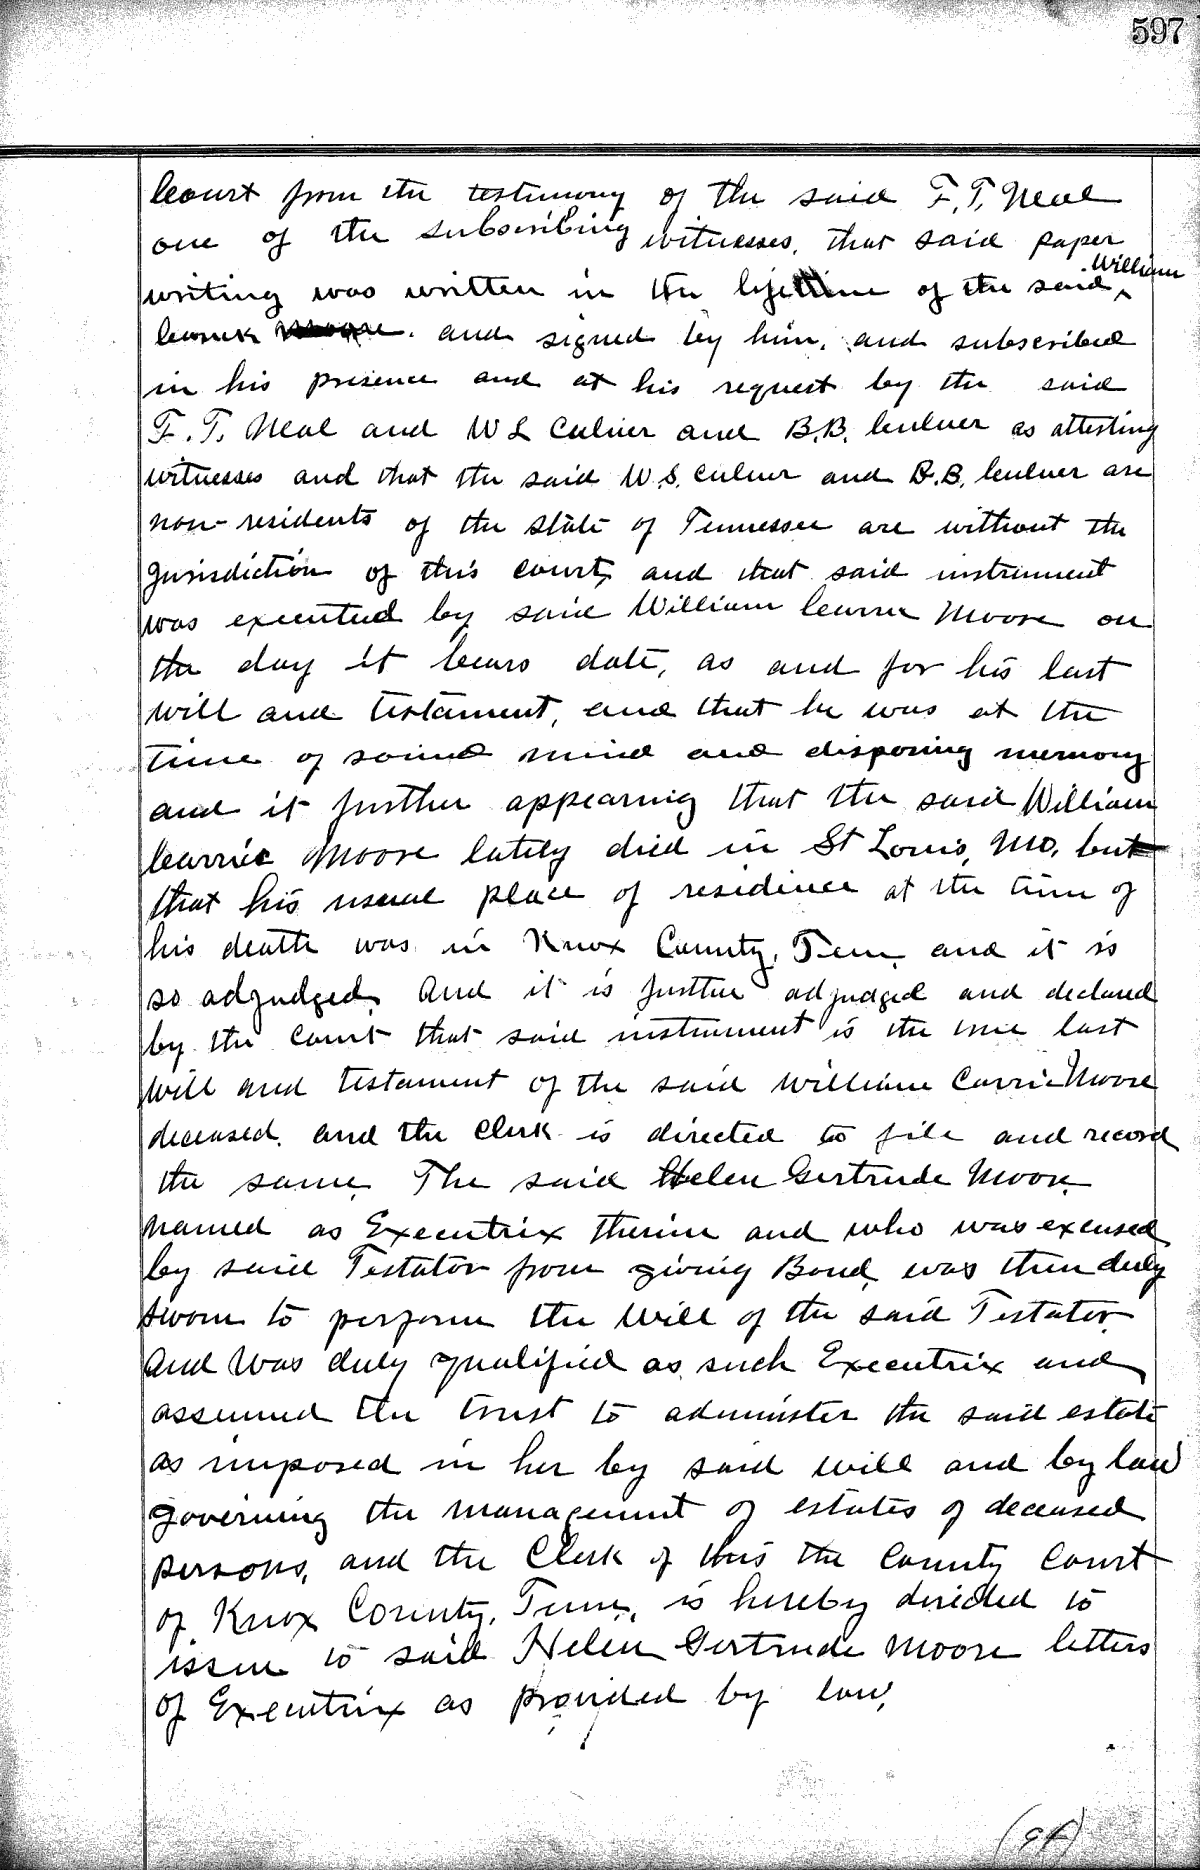 597
Court from the testimony of the said F. T. Neal
one of the subscribing witnesses, that said paper
writing was written in the lifetime of the said William
and signed by him, and subscribed
in his presence and at his request by the said
F. T. Neal and W S Culver and B.B. Culver as attesting
witnesses and that the said W.S. Culver and B.B. Culver are
non-residents of the state of Tennessee are without the
Jurisdiction of this court, and that said instrument
was executed by said William Currie Moore on
the day it bears date, as and for his last
will and testament, and that he was at the
time of sound mind and disposing memory
and it further appearing that the said William
Currie Moore lately died in St Louis, Mo, but
that his usual place of residence at the time of
his death was in Knox County, Tenn, and it is
so adjudged, And it is further adjudged and declared
by the Court that said instrument is the true last
will and testament of the said William Currie Moore
deceased, and the Clerk is directed to file and record
the same. The said Helen Gertrude Moore
named as Executrix therein and who was excused
by said Testator from giving Bond, was then duly
sworn to perform the Will of the said Testator
and was duly qualified as such Executrix and
assumed the trust to administer the said estate
as imposed in her by said will and by law
governing the management of estates of deceased
persons, and the Clerk of this the County Court
of Knox County, Tenn, is hereby directed to
issue to said Helen Gertrude Moore letters
of Executrix as provided by law,